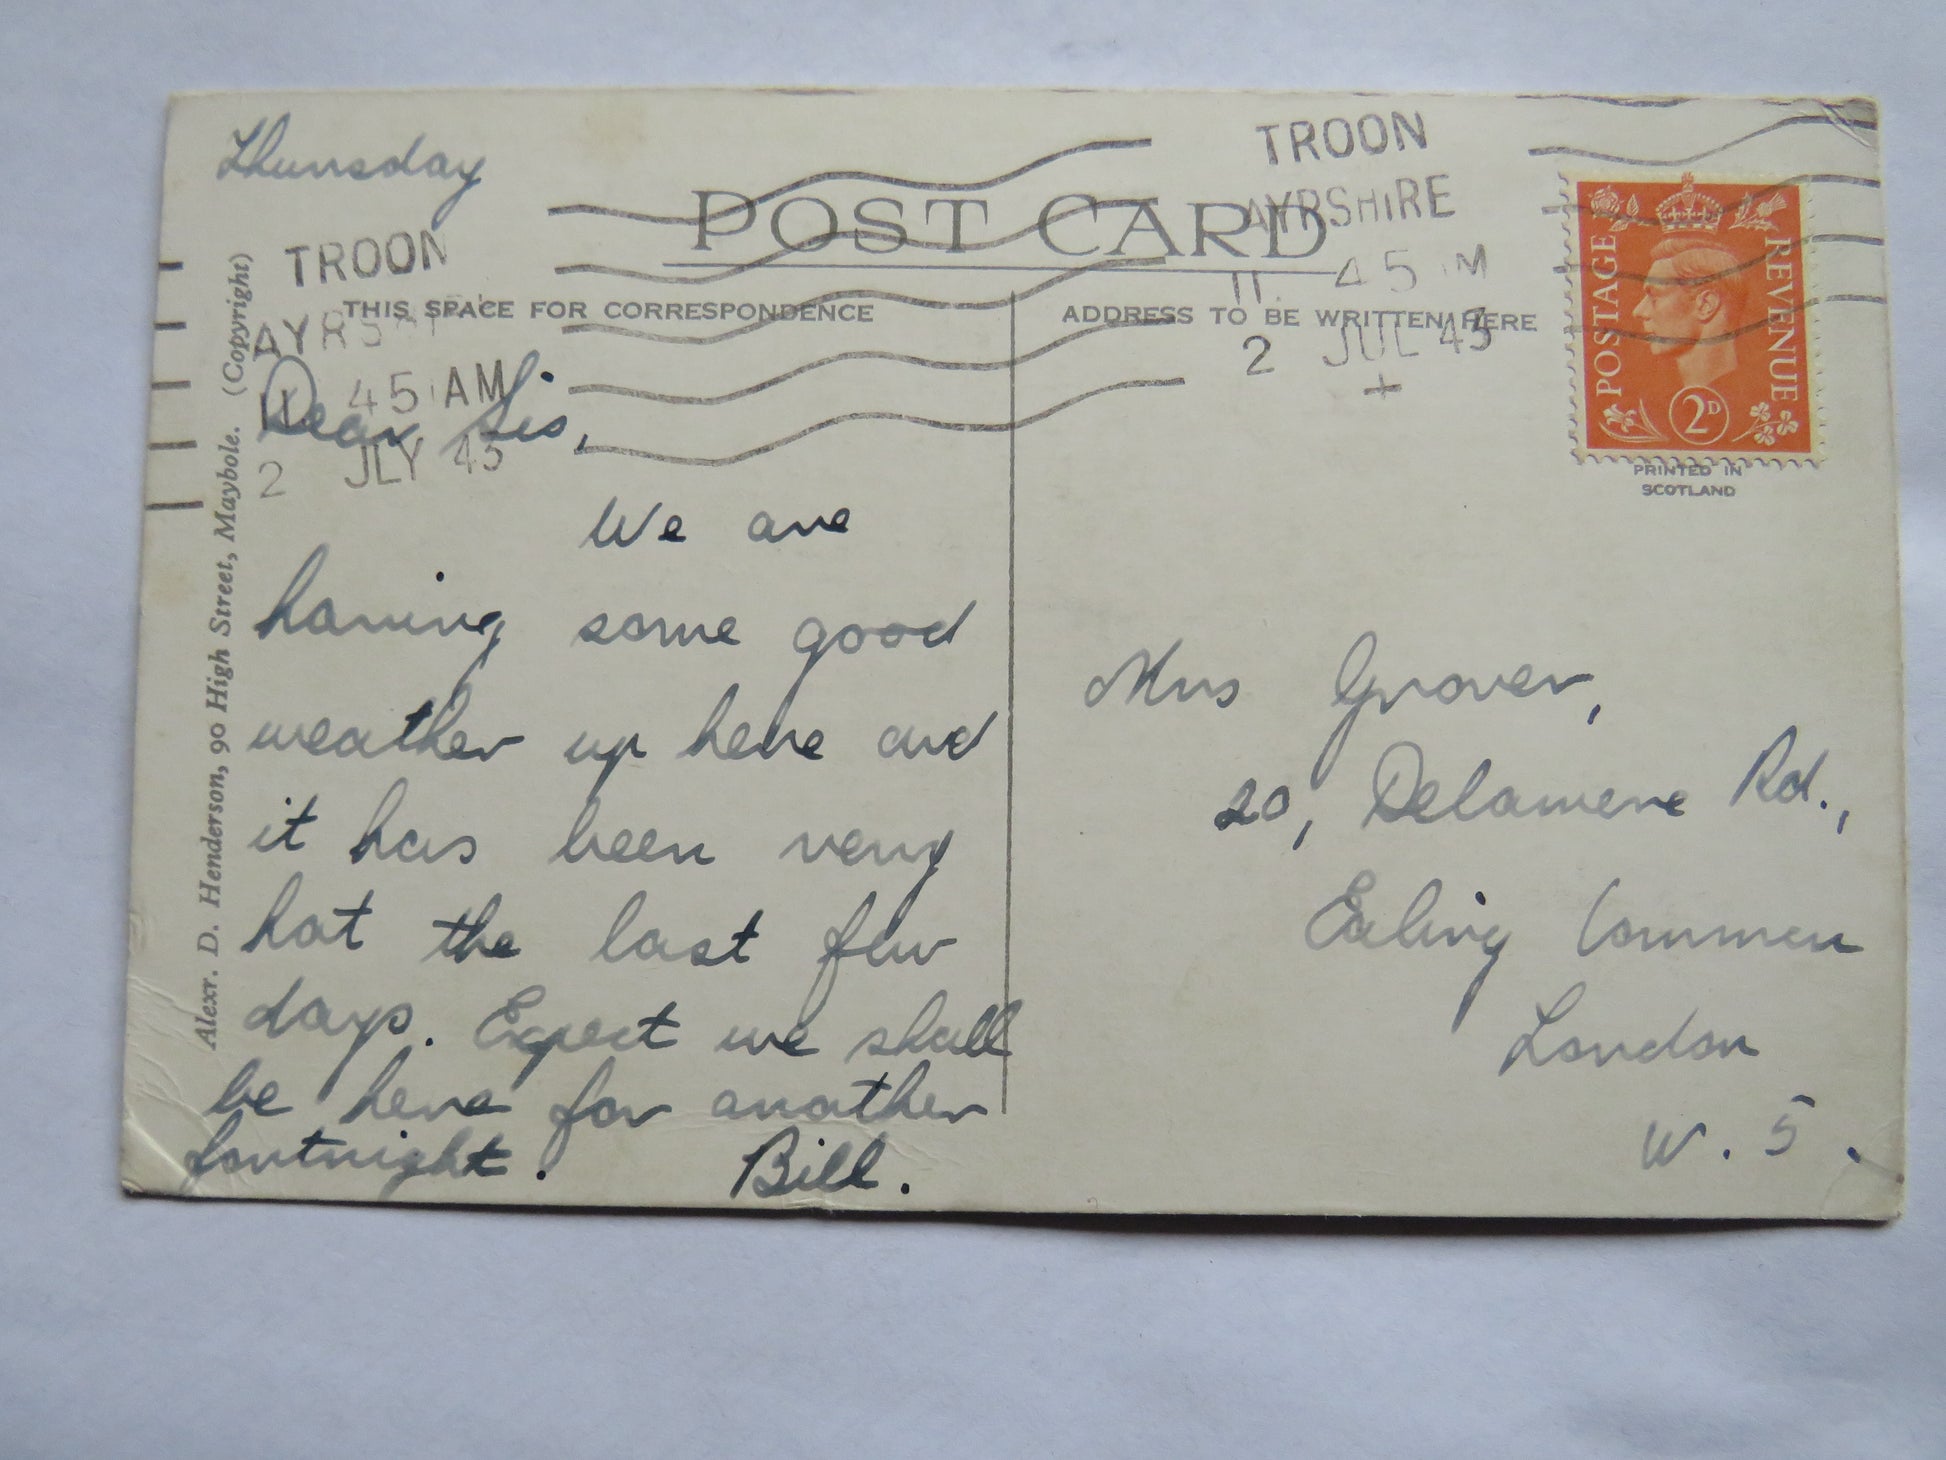 Thursday
POST CARD
TROON
AYRSHIRE
11. 45 M
2 JUL 45
TROON
45 AM
2 JLY 45
THIS SPACE FOR CORRESPONDENCE
ADDRESS TO BE WRITTEN HERE
POSTAGE
REVENUE
2D
PRINTED IN
SCOTLAND
Alexr. D. Henderson, 90 High Street, Maybole. (Copyright)
Dear Sis,
We are
having some good
weather up here and
it has been very
hot the last few
days. Expect we shall
be here for another
fortnight. Bill.
Mrs Grover,
20, Delamere Rd.,
Ealing Common
London
W. 5.